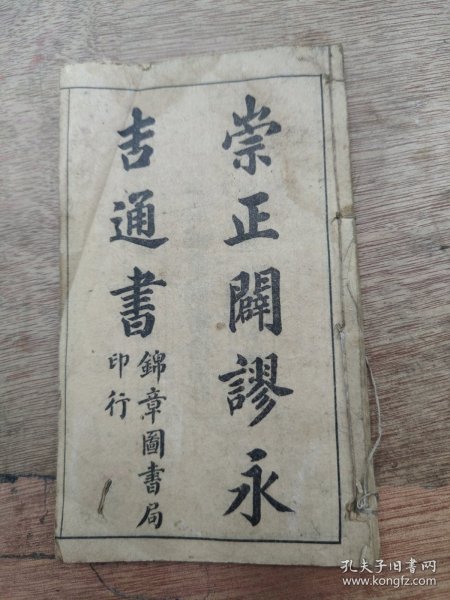 崇正闢謬永
吉通書
錦章圖書局
印行
孔夫子旧书网
www.kongfz.com